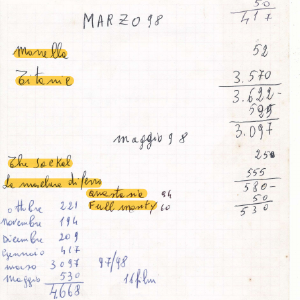 50
417
MARZO 98
Marella 52
Titanic 3.570
3.622-
525
3.097
maggio 98
The Jackal 25
La maschera di ferro 555
anastasia 94 580-
Full monty 60 50
530
ottobre 221
novembre 194
Dicembre 209
Gennaio 417
marzo 3097 97/98
Maggio 530 16 film
4668